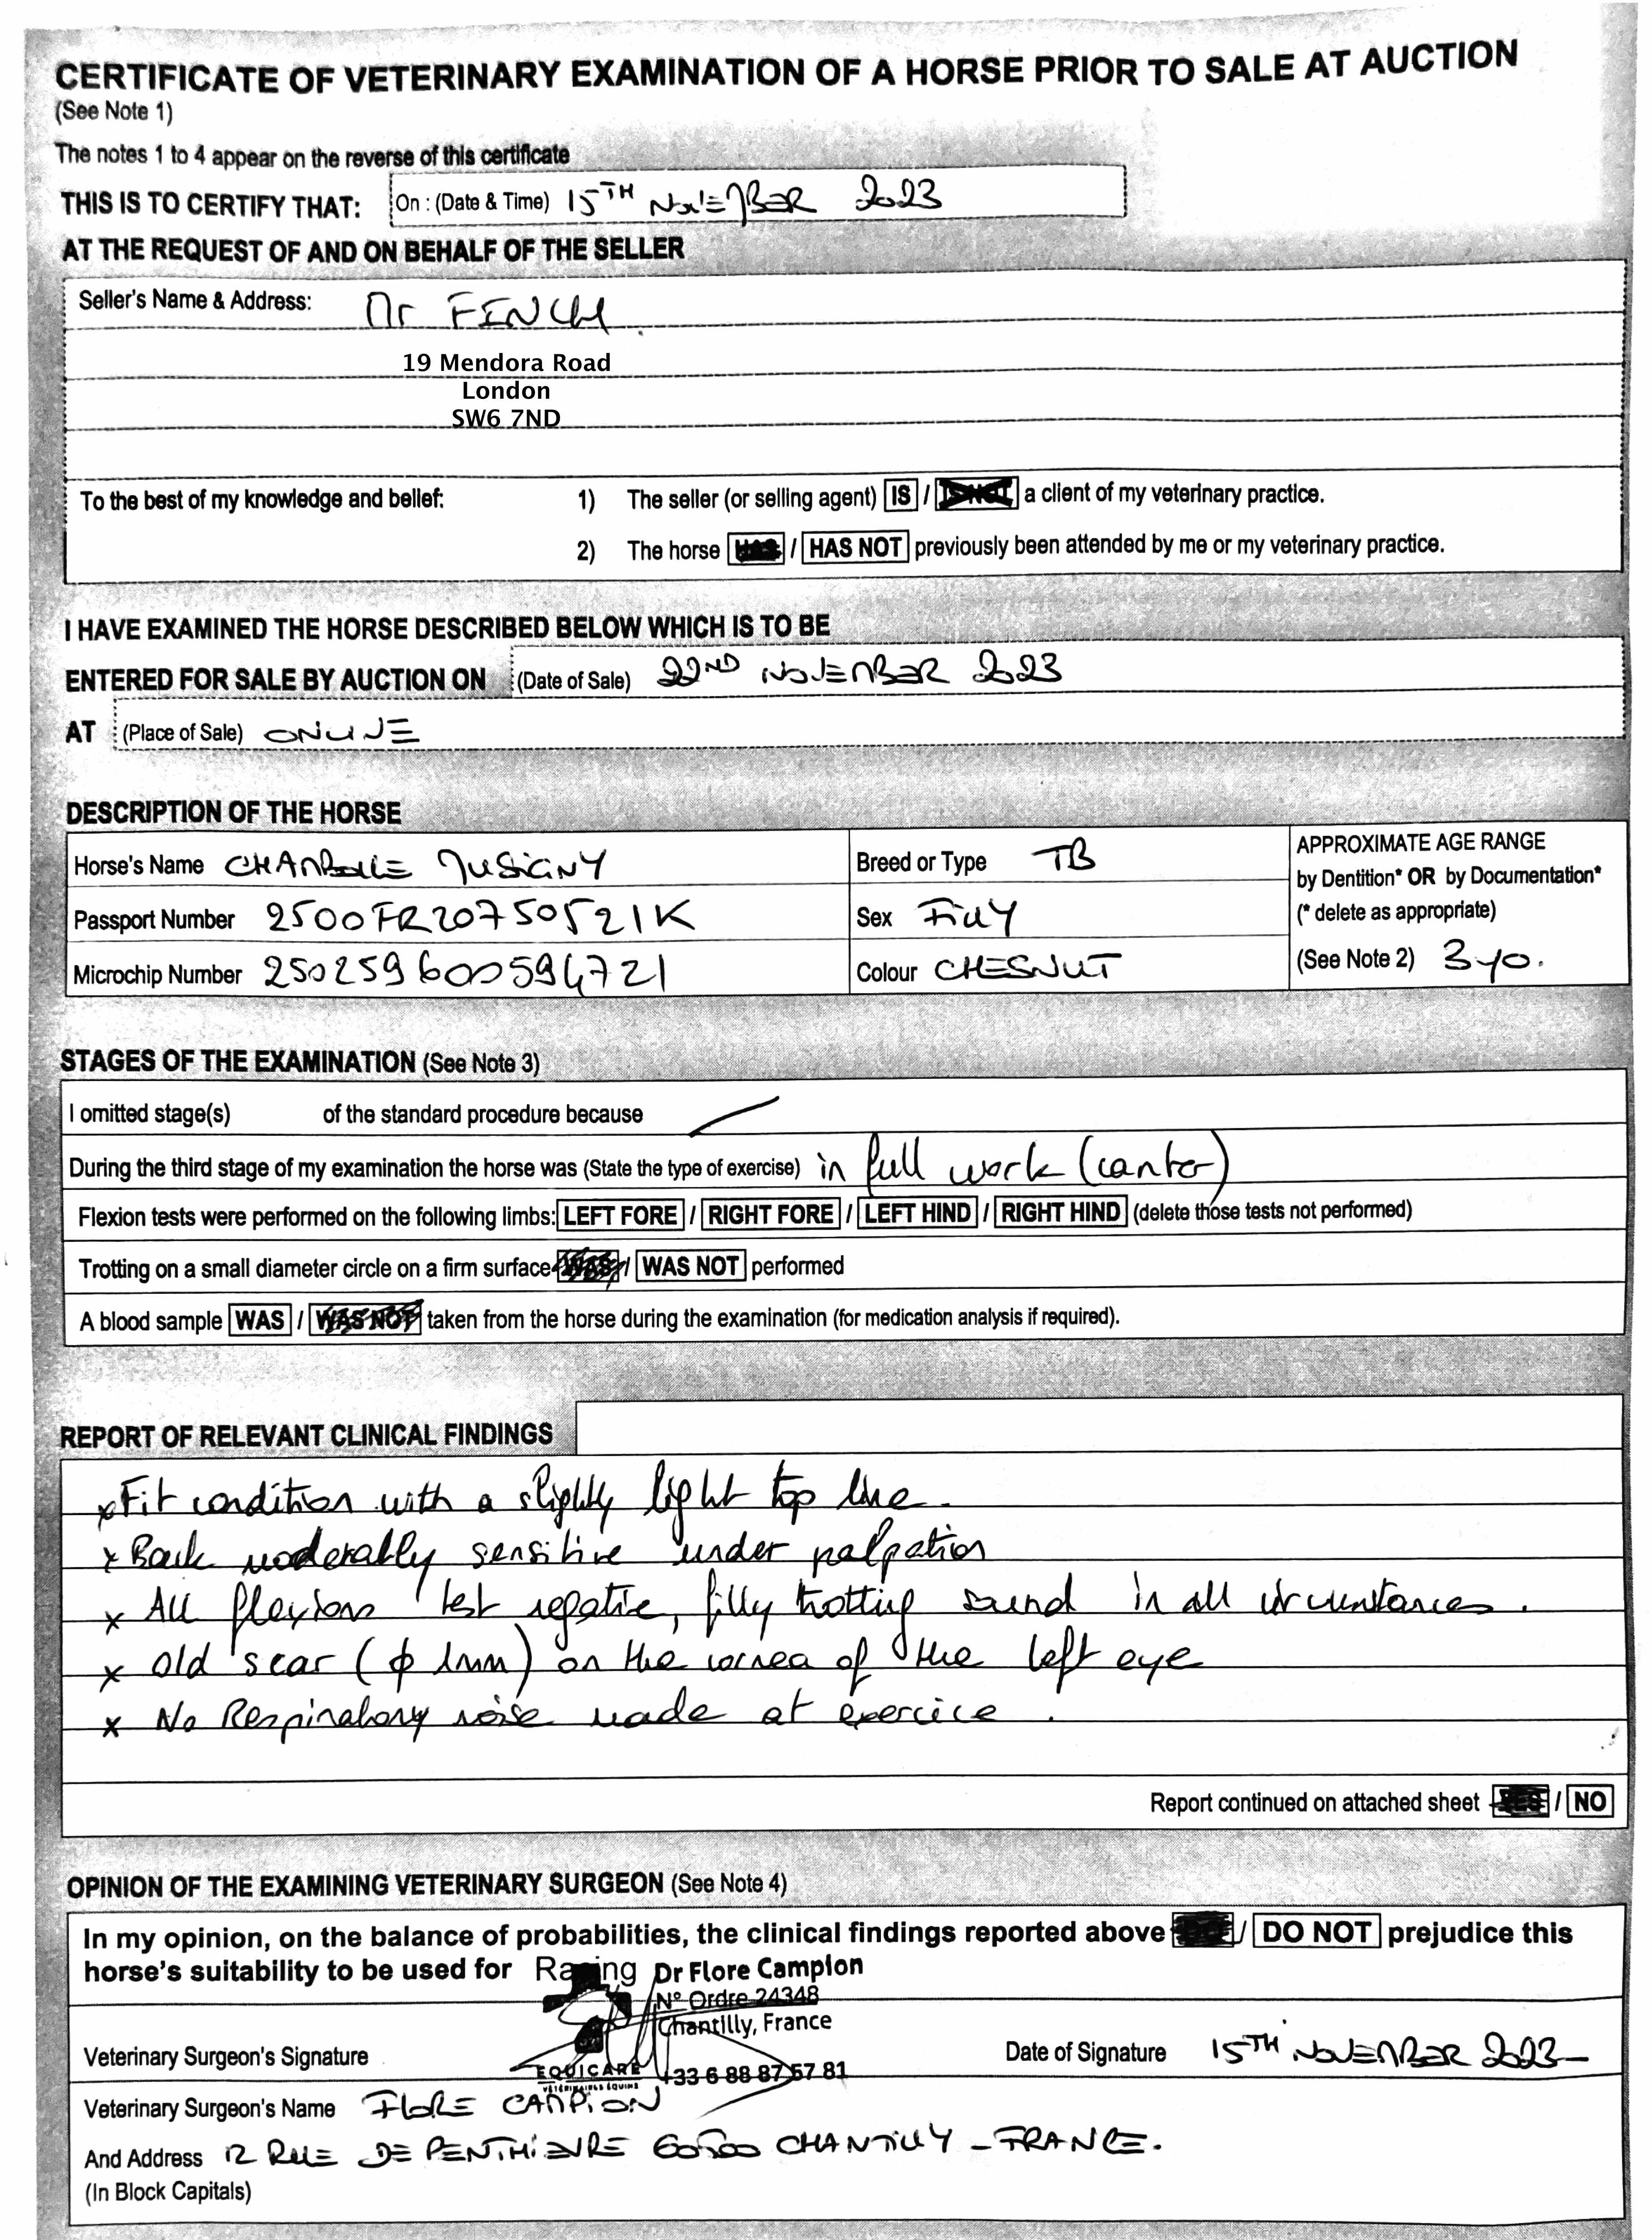 CERTIFICATE OF VETERINARY EXAMINATION OF A HORSE PRIOR TO SALE AT AUCTION
(See Note 1)
The notes 1 to 4 appear on the reverse of this certificate
THIS IS TO CERTIFY THAT: On : (Date & Time) 15TH NOVEMBER 2023
AT THE REQUEST OF AND ON BEHALF OF THE SELLER
Seller's Name & Address: Mr FINCH
19 Mendora Road
London
SW6 7ND
To the best of my knowledge and belief: 1) The seller (or selling agent) IS / IS NOT a client of my veterinary practice.
2) The horse HAS / HAS NOT previously been attended by me or my veterinary practice.
I HAVE EXAMINED THE HORSE DESCRIBED BELOW WHICH IS TO BE
ENTERED FOR SALE BY AUCTION ON (Date of Sale) 22ND NOVEMBER 2023
AT (Place of Sale) ONLINE
DESCRIPTION OF THE HORSE
Horse's Name CHAMBOLLE MUSIGNY Breed or Type TB APPROXIMATE AGE RANGE
by Dentition* OR by Documentation*
Passport Number 2500FR20750521K Sex FILLY (* delete as appropriate)
Microchip Number 250259600594721 Colour CHESNUT (See Note 2) 3yo.
STAGES OF THE EXAMINATION (See Note 3)
I omitted stage(s) of the standard procedure because
During the third stage of my examination the horse was (State the type of exercise) in full work (canter)
Flexion tests were performed on the following limbs: LEFT FORE / RIGHT FORE / LEFT HIND / RIGHT HIND (delete those tests not performed)
Trotting on a small diameter circle on a firm surface WAS / WAS NOT performed
A blood sample WAS / WAS NOT taken from the horse during the examination (for medication analysis if required).
REPORT OF RELEVANT CLINICAL FINDINGS
x Fit condition with a slightly light top line.
x Back moderably sensitive under palpation
x All flexions test negative, filly trotting sound in all circumstances.
x old scar (ϕ 1mm) on the cornea of the left eye
x No Respiratory noise made at exercice.
Report continued on attached sheet YES / NO
OPINION OF THE EXAMINING VETERINARY SURGEON (See Note 4)
In my opinion, on the balance of probabilities, the clinical findings reported above / DO NOT prejudice this
horse's suitability to be used for Racing Dr Flore Campion
N° Ordre 24348
Chantilly, France
Veterinary Surgeon's Signature Date of Signature 15TH NOVEMBER 2023
EQUICARE +33 6 88 87 57 81
VÉTÉRINAIRES ÉQUINS
Veterinary Surgeon's Name FLORE CAMPION
And Address 12 RUE DE PENTHIEVRE 60500 CHANTILLY - FRANCE.
(In Block Capitals)